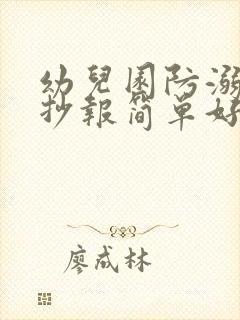 幼兒園防溺
抄報简单好
廖成林